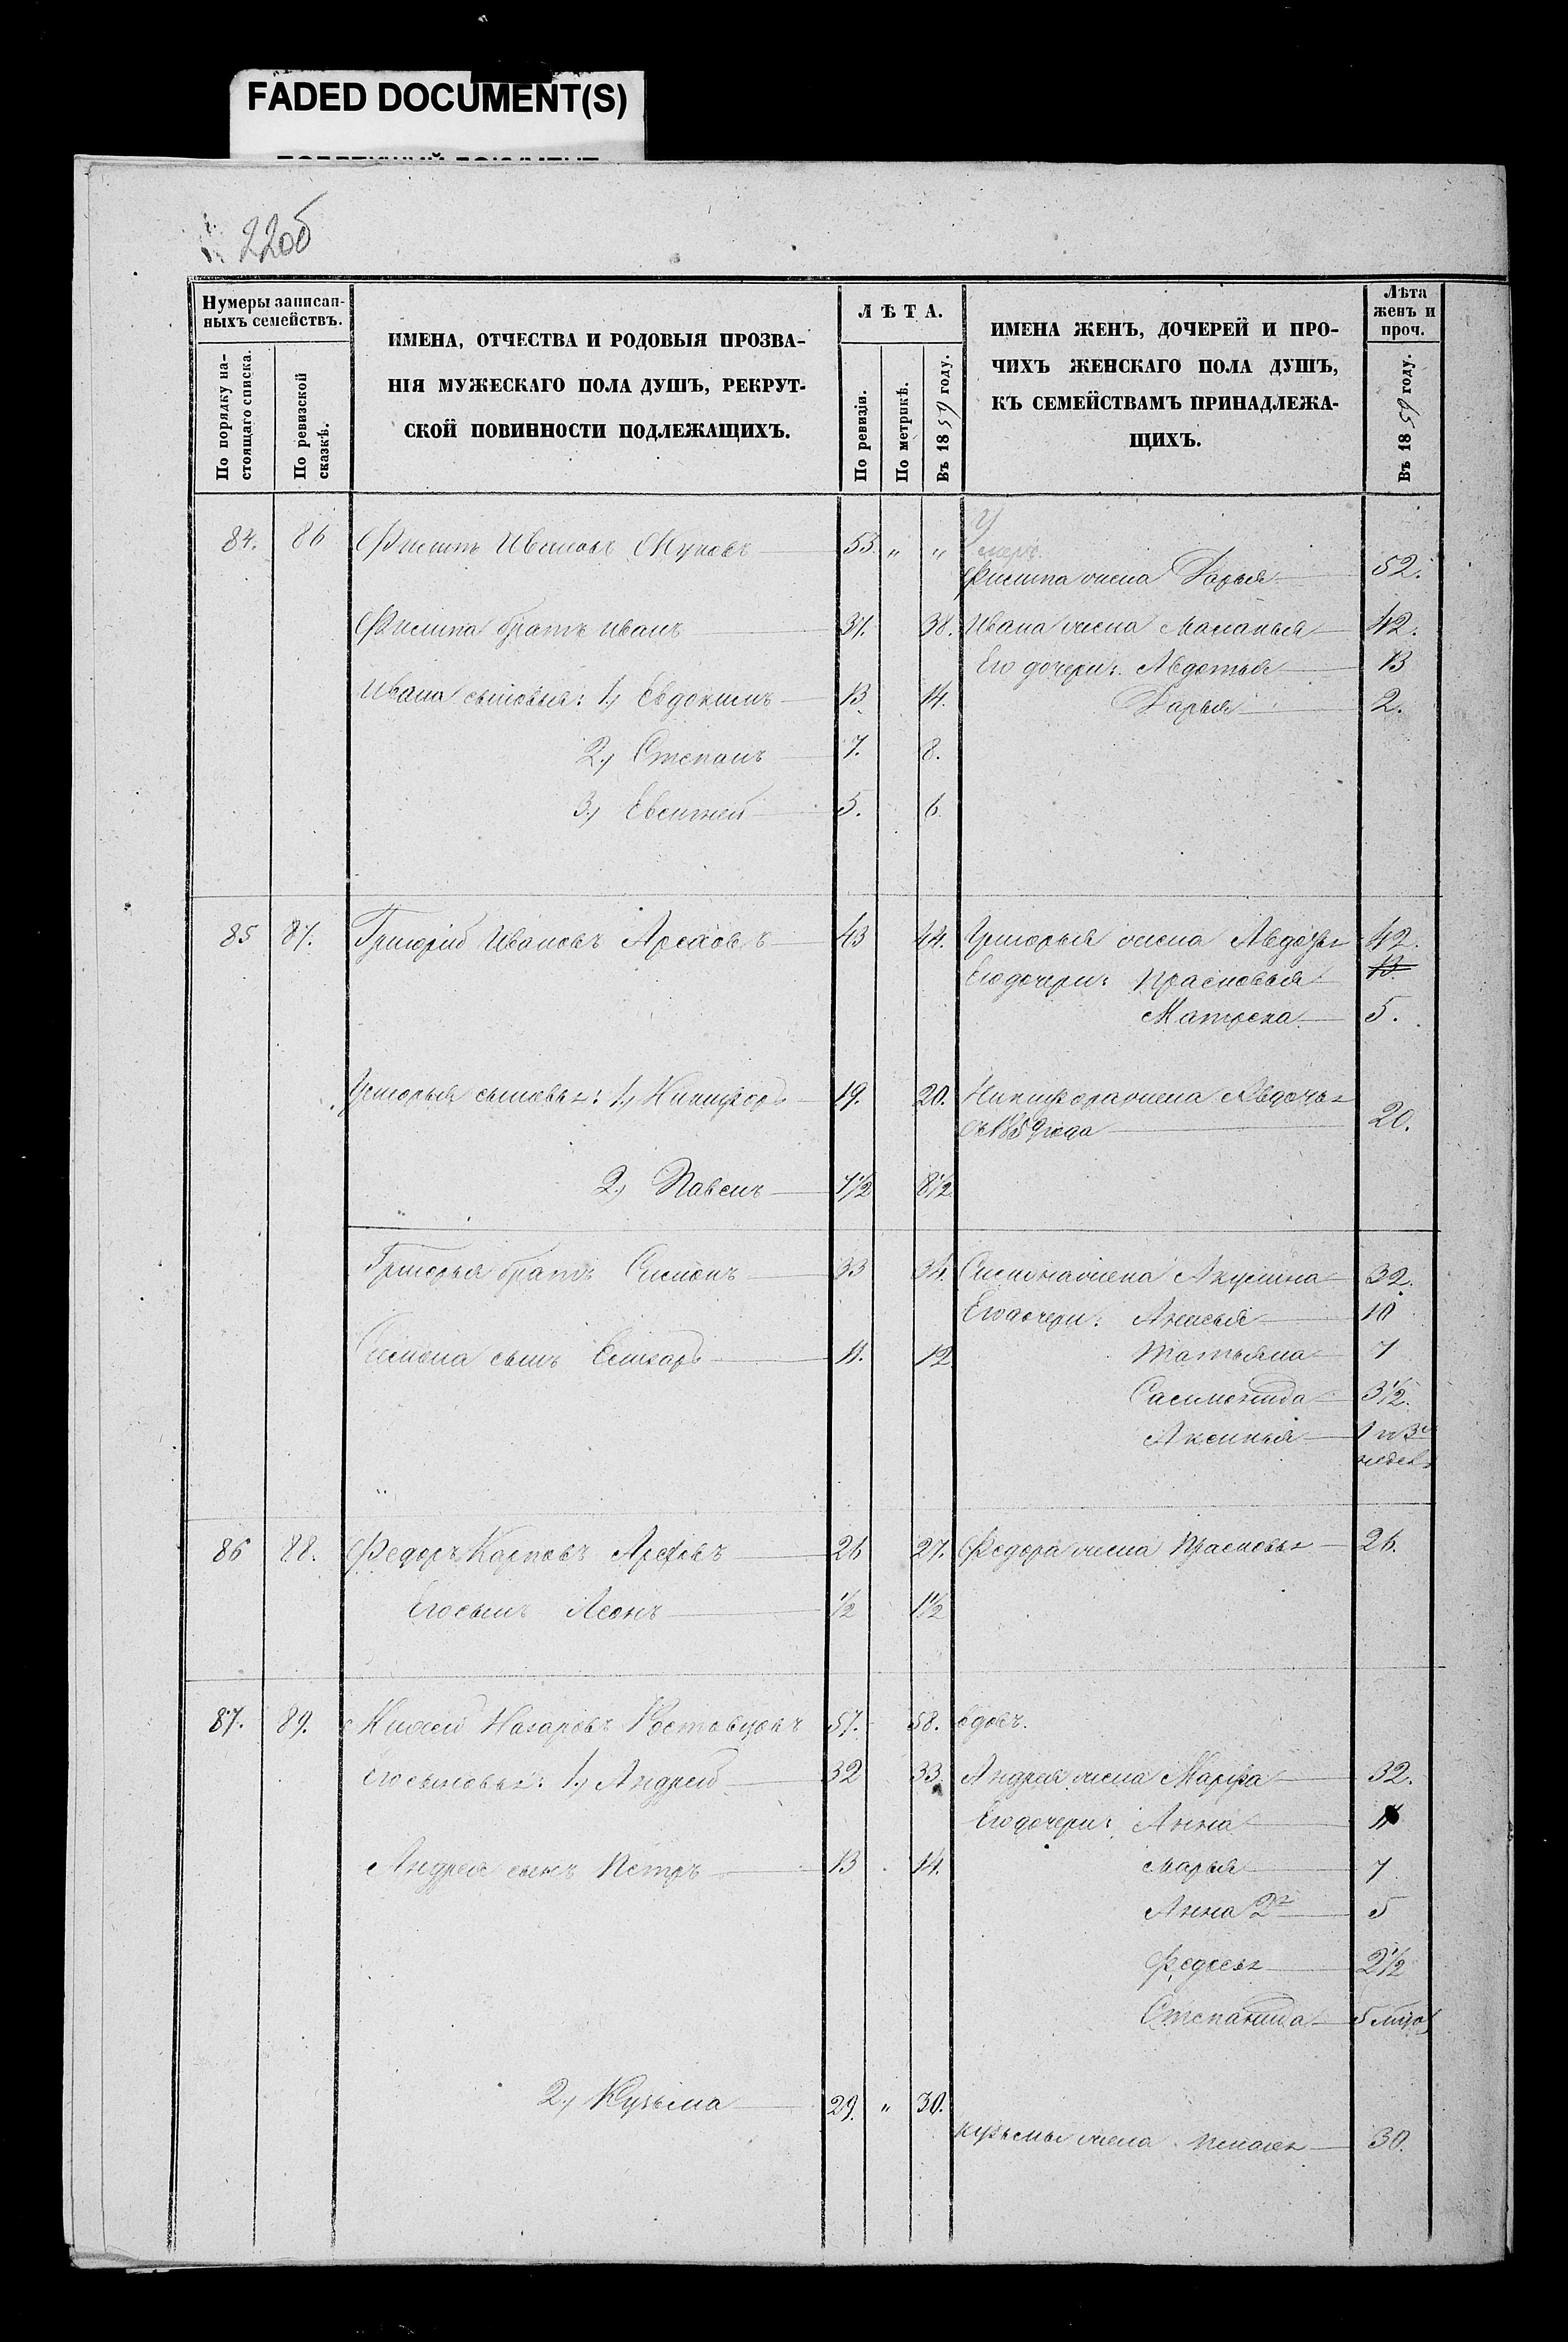 FADED DOCUMENT(S)
22об
Нумеры записан-
ныхъ семействъ.
По порядку на-
стоящаго списка.
По ревизской
сказкѣ.
ИМЕНА, ОТЧЕСТВА И РОДОВЫЯ ПРОЗВА-
НІЯ МУЖЕСКАГО ПОЛА ДУШЪ, РЕКРУТ-
СКОЙ ПОВИННОСТИ ПОДЛЕЖАЩИХЪ.
ЛѢТА.
По ревизіи.
По метрикѣ.
Въ 1859 году.
ИМЕНА ЖЕНЪ, ДОЧЕРЕЙ И ПРО-
ЧИХЪ ЖЕНСКАГО ПОЛА ДУШЪ,
КЪ СЕМЕЙСТВАМЪ ПРИНАДЛЕЖА-
ЩИХЪ.
Лѣта
женъ и
проч.
Въ 1859 году.
84. 86 Филипъ Ивановъ Жуковъ 53 " " Умеръ.
Филипа жена Дарья 52.
Филипа братъ Иванъ 37. 38. Ивана жена Маланья 42.
Его дочери: Авдотья 13
Ивана сыновья: 1, Евдокимъ 13 14. Дарья 2.
2, Степанъ 7. 8.
3, Евсигней 5. 6.
85 87. Григорій Ивановъ Ареховъ 43 44. Григорья жена Авдотья 42.
Его дочери: Прасковья 13
Матрена 5.
Григорья сыновья: 1, Никифоръ 19. 20. Никифора жена Авдотья
съ 1859 года 20.
2, Павелъ 7½ 8½
Григорья братъ Симонъ 33 34. Симона жена Акулина 32.
Его дочери: Анисья 10
Симона сынъ 11. 12 Татьяна 7
3½
Аксинья 1 и 3
недель
86 88. Федоръ Карповъ Ареховъ 26 27. Федора жена Прасковья 26.
Его сынъ Леонъ ½ 1½
87. 89. Михей Назаровъ Ростовцовъ 57. 58. вдовъ.
Его сыновья: 1, Андрей 32 33. Андрея жена Марфа 32.
Его дочери: Анна
Андрея сынъ Петръ 13 14. Марья 7
Анна 2я 5
Федосья 2½
Степанида 5 мцов
2, Кузьма 29. " 30.
Кузьмы жена 30.